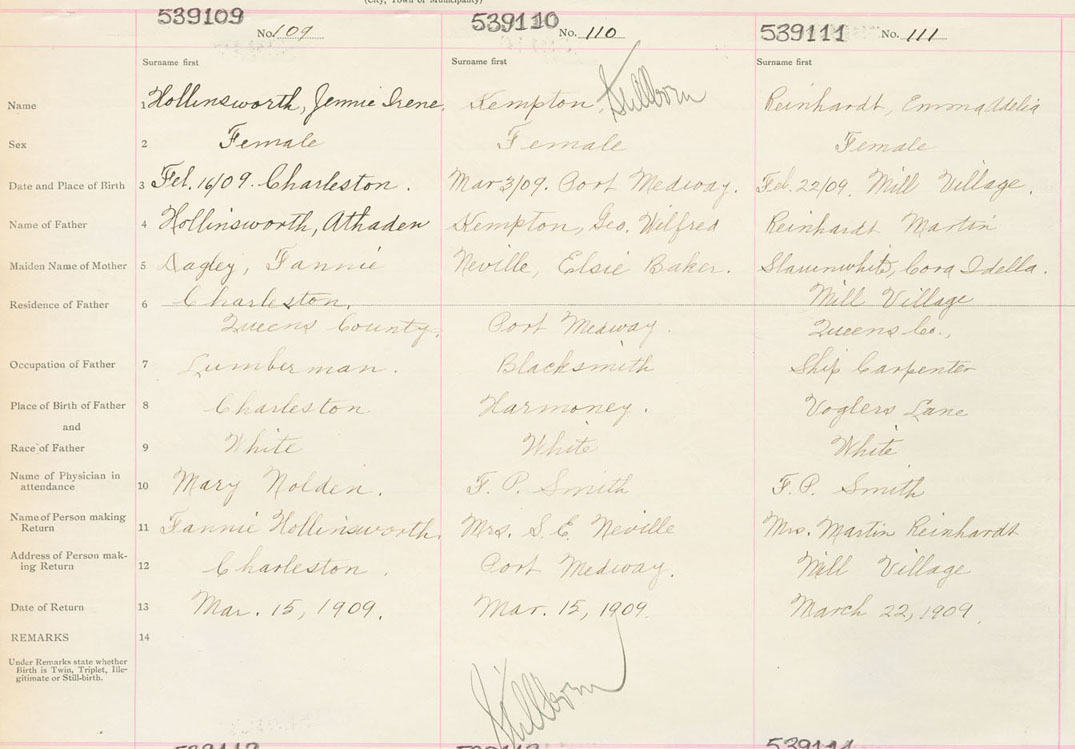 (City, Town or Municipality)
539109 539110 539111
No. 109 No. 110 No. 111
Surname first Surname first Surname first
Name 1 Hollinsworth, Jennie Irene. Kempton Stillborn Reinhardt, Emma Adelia
Sex 2 Female Female Female
Date and Place of Birth 3 Feb. 16/09. Charleston. Mar 3/09. Port Medway. Feb. 22/09. Mill Village.
Name of Father 4 Hollinsworth, Athaden Kempton, Geo. Wilfred Reinhardt Martin
Maiden Name of Mother 5 Dagley, Fannie Neville, Elsie Baker. Slaunwhite, Cora Idella.
Residence of Father 6 Charleston, Mill Village
Queens County. Port Medway. Queens Co.,
Occupation of Father 7 Lumberman. Blacksmith Ship Carpenter
Place of Birth of Father 8 Charleston Harmoney. Voglers Lane
and
Race of Father 9 White White White
Name of Physician in
attendance 10 Mary Nolden. F. P. Smith F. P. Smith
Name of Person making
Return 11 Fannie Hollinsworth. Mrs. S. E. Neville Mrs. Martin Reinhardt
Address of Person mak-
ing Return 12 Charleston. Port Medway. Mill Village
Date of Return 13 Mar. 15, 1909. Mar. 15, 1909. March 22, 1909.
REMARKS 14
Under Remarks state whether
Birth is Twin, Triplet, Ille-
gitimate or Still-birth.
Stillborn